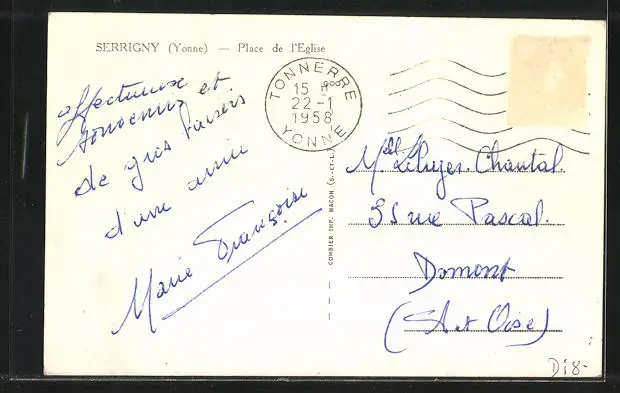 SERRIGNY (Yonne) — Place de l'Eglise
TONNERRE
15 H
22-1
1958
YONNE
affectueux
souvenirs et
de gros baisers
d'une amie
Marie Françoise
COMBIER IMP. MACON (S.-ET-L.)
Mlle Chantal
rue Pascal
Domont
(S et Oise)
D18-